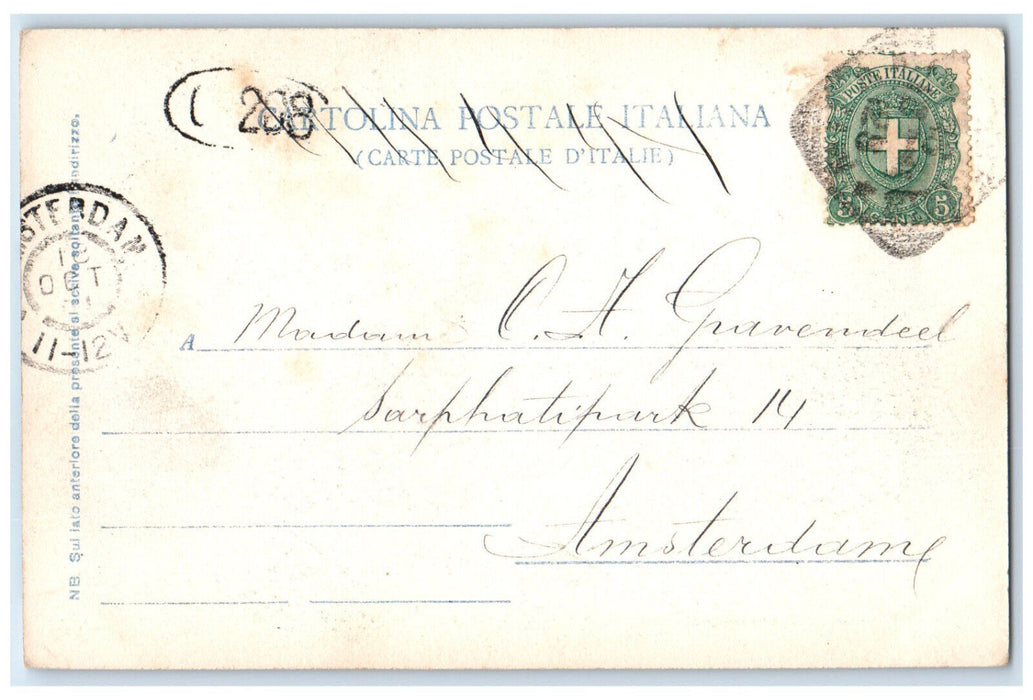 CARTOLINA POSTALE ITALIANA
(CARTE POSTALE D'ITALIE)
288
POSTE ITALIANE
5 CENT. 5
AMSTERDAM
18
OCT
11-12 V
A Madam C. A. Gravendeel
Sarphatipark 14
Amsterdame
NB. Sul lato anteriore della presente si scrive soltanto l'indirizzo.